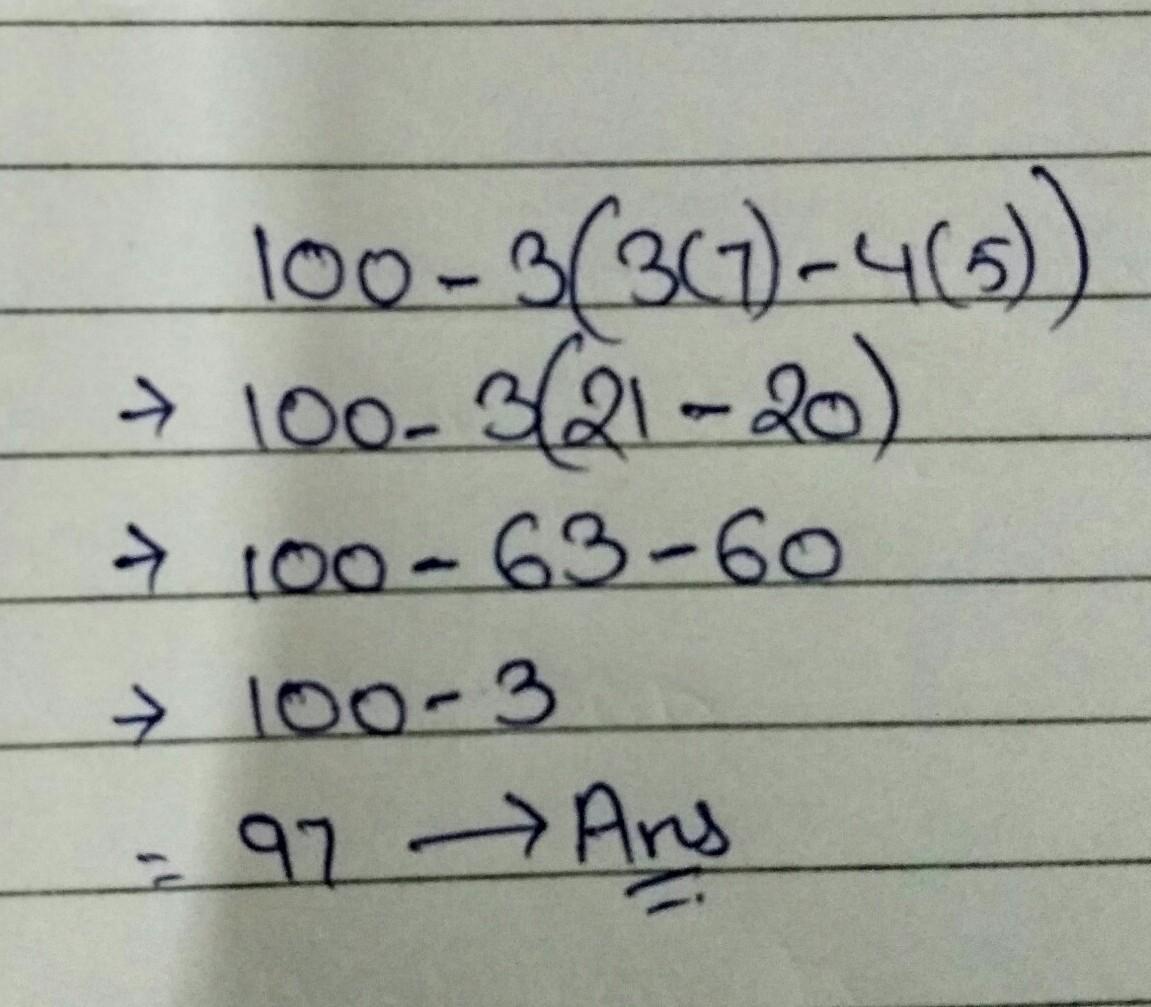 100 - 3(3(7) - 4(5))
→ 100 - 3(21 - 20)
→ 100 - 63 - 60
→ 100 - 3
= 97 ⟶ Ans